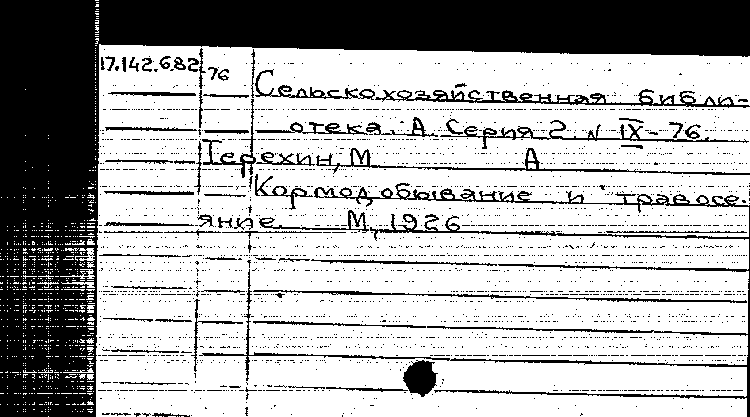 17.142.682-76 Сельскохозяйственная библи-
отека. А. Серия 2 N IX-76.
Терехин, М А
Кормодобывание и травосе-
яние. М, 1926